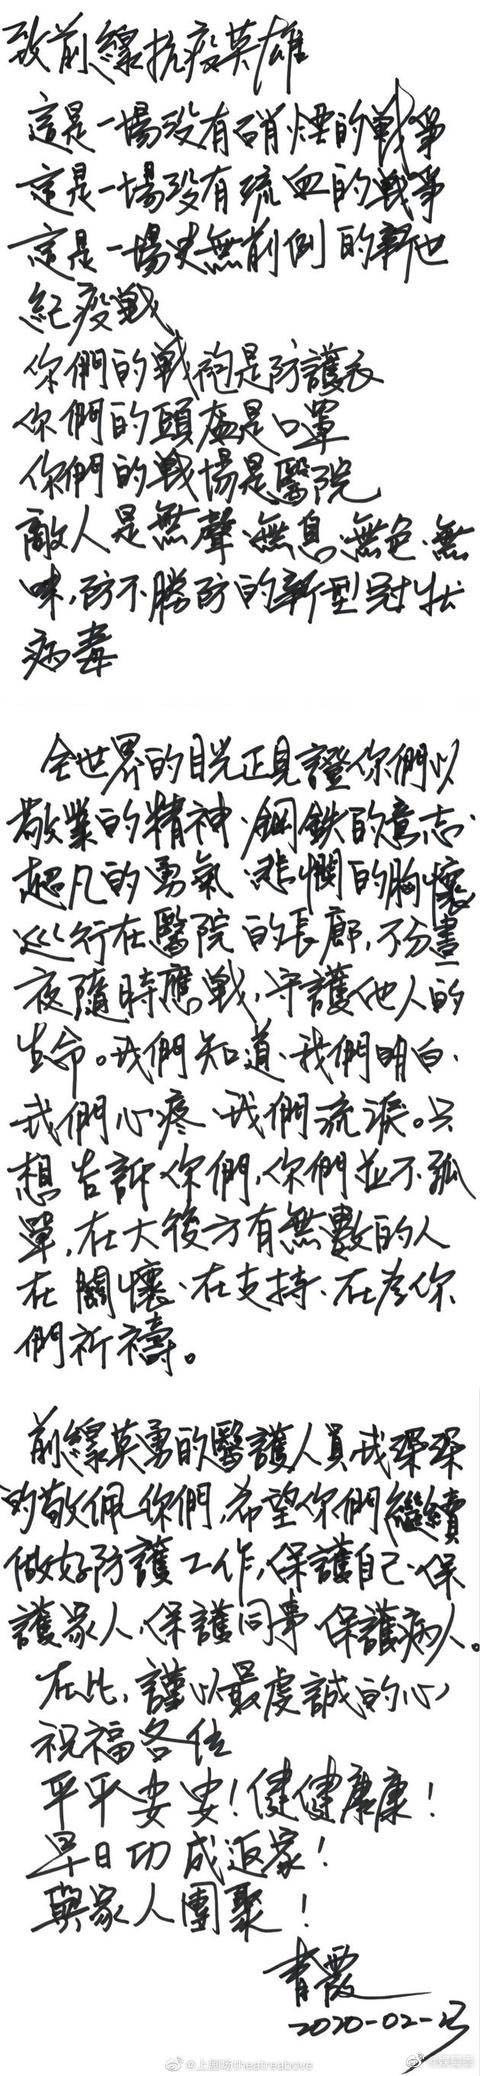 致前線抗疫英雄
這是一場沒有硝煙的戰爭
這是一場沒有流血的戰爭
這是一場史無前例的新世
紀疫戰
你們的戰袍是防護衣
你們的頭盔是口罩
你們的戰場是醫院
敵人是無聲、無息、無色、無
味,防不勝防的新型冠狀
病毒
全世界的目光正見證你們以
敬業的精神、鋼鐵的意志、
超凡的勇氣、悲憫的胸懷
巡行在醫院的長廊,不分晝
夜隨時應戰,守護他人的
生命。我們知道、我們明白、
我們心疼、我們流淚。只
想告訴你們,你們並不孤
單,在大後方有無數的人
在關懷、在支持、在為你
們祈禱。
前線英勇的醫護人員,我深深
的敬佩你們,希望你們繼續
做好防護工作,保護自己、保
護家人、保護同事、保護病人。
在此,謹以最虔誠的心
祝福各位
平平安安!健健康康!
早日功成返家!
與家人團聚!
青霞
2020-02-
@上剧场theatreabove